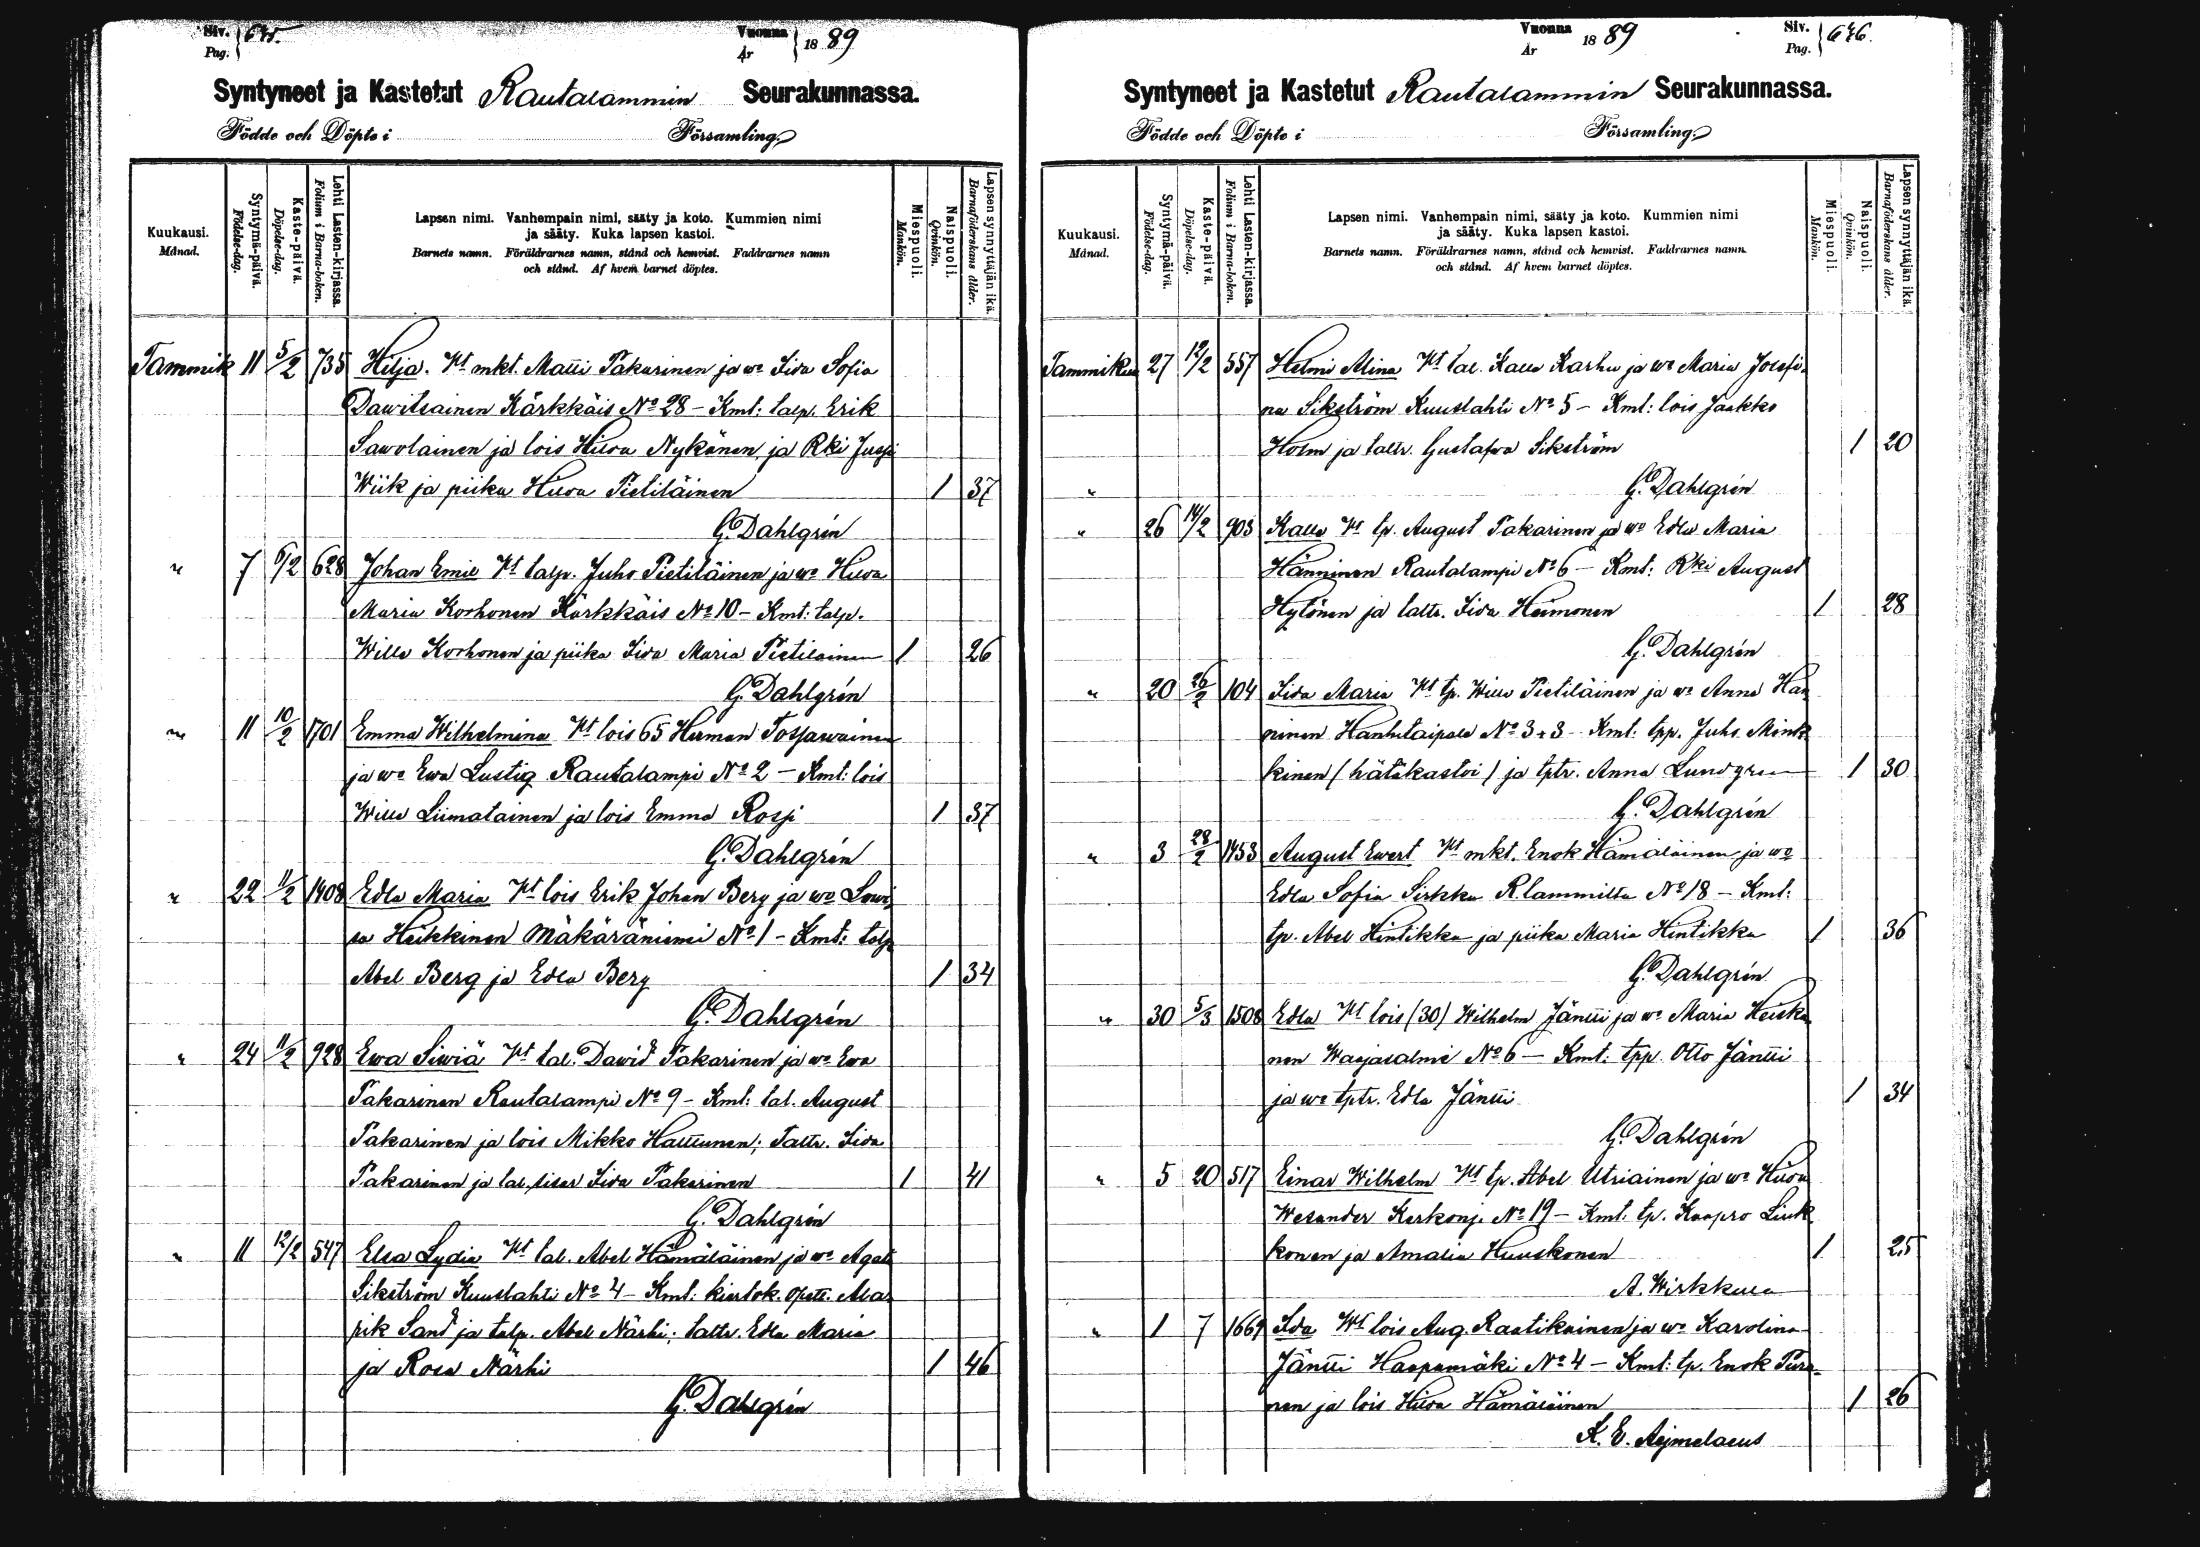 Siv. Pag. 645. Vuonna År 1889
Syntyneet ja Kastetut Rautalammin Seurakunnassa.
Födde och Döpte i Församling.
Kuukausi. Månad.
Syntymä-päivä. Födelse-dag.
Kaste-päivä. Döpelse-dag.
Lehti Lasten-kirjassa. Folium i Barna-boken.
Lapsen nimi. Vanhempain nimi, sääty ja koto. Kummien nimi
ja sääty. Kuka lapsen kastoi.
Barnets namn. Föräldrarnes namn, stånd och hemvist. Faddrarnes namn
och stånd. Af hvem barnet döptes.
Miespuoli. Mankön.
Naispuoli. Qvinkön.
Lapsen synnyttäjän ikä. Barnaföderskans ålder.
Tammik 11 5/2 735 Hilja. Vt mkt. Matti Pakarinen ja wo Iida Sofia
Dawitsainen Kärkkäis No 28 - Kmt: talp. Erik
Sawolainen ja lois Hilda Nykänen, ja Rki Jussi
Wiik ja piika Hilda Pietiläinen 1 37
G. Dahlgrén
" 7 6/2 628 Johan Emil Vt talp. Juho Pietiläinen ja wo Hilda
Maria Korhonen Kärkkäis No 10 - Kmt: talp.
Wille Korhonen ja piika Iida Maria Pietiläinen 1 26
G. Dahlgrén
" 11 10/2 1701 Emma Wilhelmina Vt lois 65 Herman Tossawainen
ja wo Ewa Lustig Rautalampi No 2 - Kmt: lois
Wille Liimatainen ja lois Emma Rossi 1 37
G. Dahlgrén
" 22 11/2 1408 Edla Maria Vt lois Erik Johan Berg ja wo Lowi
sa Heikkinen Mäkäräniemi No 1 - Kmt: talp
Abel Berg ja Edla Berg 1 34
G. Dahlgrén
" 24 11/2 928 Ewa Siwiä Vt tal. Dawid Pakarinen ja wo Ewa
Pakarinen Rautalampi No 9 - Kmt: tal. August
Pakarinen ja lois Mikko Hattunen; Taltr. Iida
Pakarinen ja tal. sisar Iida Pakarinen 1 41
G. Dahlgrén
" 11 12/2 547 Elsa Lydia Vt tal. Abel Hämäläinen ja wo Agata
Sikström Kuuslahti No 4 - Kmt: kiertok. opett. Ala
rik Sand ja talp. Abel Närhi; taltr. Edla Maria
ja Rosa Närhi 1 46
G. Dahlgrén
Vuonna År 1889 Siv. Pag. 646.
Syntyneet ja Kastetut Rautalammin Seurakunnassa.
Födde och Döpte i Församling.
Kuukausi. Månad.
Syntymä-päivä. Födelse-dag.
Kaste-päivä. Döpelse-dag.
Lehti Lasten-kirjassa. Folium i Barna-boken.
Lapsen nimi. Vanhempain nimi, sääty ja koto. Kummien nimi
ja sääty. Kuka lapsen kastoi.
Barnets namn. Föräldrarnes namn, stånd och hemvist. Faddrarnes namn
och stånd. Af hvem barnet döptes.
Miespuoli. Mankön.
Naispuoli. Qvinkön.
Lapsen synnyttäjän ikä. Barnaföderskans ålder.
Tammikuu 27 12/2 557 Helmi Alina Vt tal. Kalle Karhu ja wo Maria Josefi
na Sikström Kuuslahti No 5 - Kmt: lois Jaakko
Holm ja taltr. Gustafva Sikström 1 20
" G. Dahlgrén
" 26 14/2 903 Kalle Vt tp. August Pakarinen ja wo Edla Maria
Hänninen Rautalampi No 6 - Kmt: Rki August
Hytönen ja taltr. Iida Heimonen 1 28
G. Dahlgrén
" 20 26/2 104 Iida Maria Vt tp. Wille Pietiläinen ja wo Anna Hän
ninen Hanhitaipale No 3+3 - Kmt: tpp. Juho Mink
kinen (hätäkastoi) ja tptr. Anna Lundgren 1 30
G. Dahlgrén
" 3 28/2 1453 August Ewert Vt mkt. Enok Hämäläinen ja wo
Edla Sofia Sirkka R.lammilta No 18 - Kmt:
tp. Abel Hintikka ja piika Maria Hintikka 1 36
G. Dahlgrén
" 30 5/3 1508 Edla Vt lois (30) Wilhelm Jäntti ja wo Maria Heiska
nen Waajasalmi No 6 - Kmt: tpp. Otto Jäntti
ja wo tptr. Edla Jäntti 1 34
G. Dahlgrén
" 5 20 517 Einar Wilhelm Vt tp. Abel Utriainen ja wo Hilda
Wesander Kerkonj. No 19 - Kmt. tp. Kaapro Liuk
konen ja Amalia Huuskonen 1 25
A. Wirkkula
" 1 7 1669 Ida Vt lois Aug. Raatikainen ja wo Karolina
Jäntti Haapamäki No 4 - Kmt: tp. Enok Tura
nen ja lois Hilda Hämäläinen 1 26
K. E. Aejmelaeus